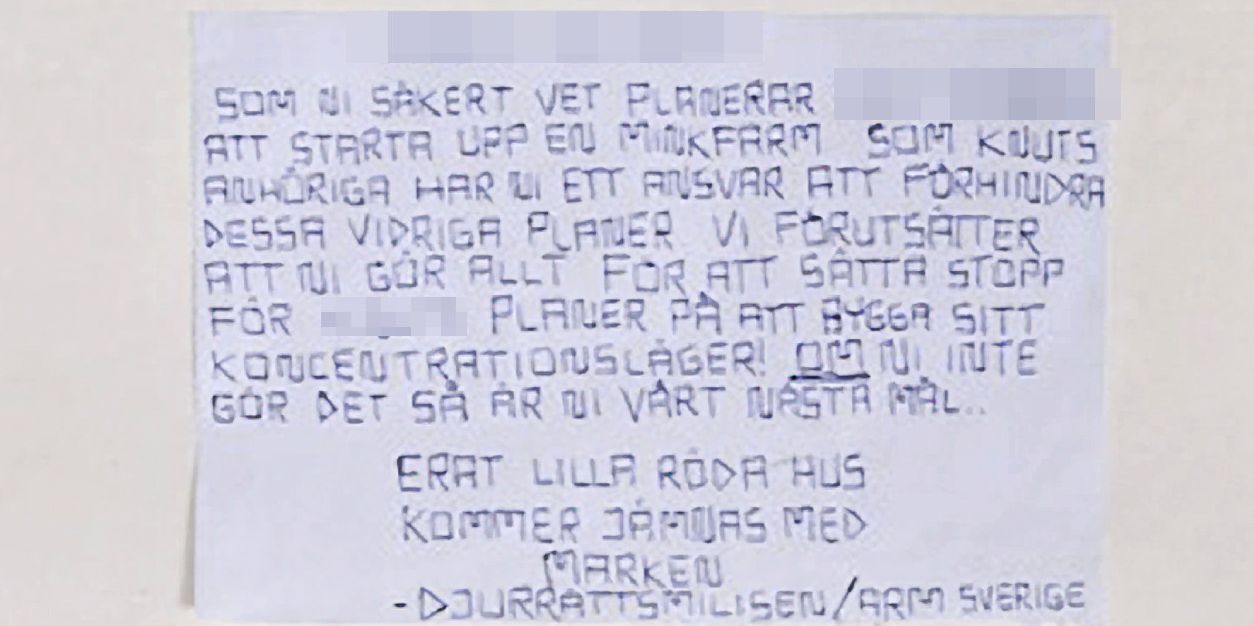 SOM NI SÄKERT VET PLANERAR
ATT STARTA UPP EN MINKFARM SOM KNUTS
ANHÖRIGA HAR NI ETT ANSVAR ATT FÖRHINDRA
DESSA VIDRIGA PLANER VI FÖRUTSÄTTER
ATT NI GÖR ALLT FÖR ATT SÄTTA STOPP
FÖR PLANER PÅ ATT BYGGA SITT
KONCENTRATIONSLÄGER! OM NI INTE
GÖR DET SÅ ÄR NI VÅRT NÄSTA MÅL..
ERAT LILLA RÖDA HUS
KOMMER JÄMNAS MED
MARKEN
-DJURRÄTTSMILISEN/ARM SVERIGE